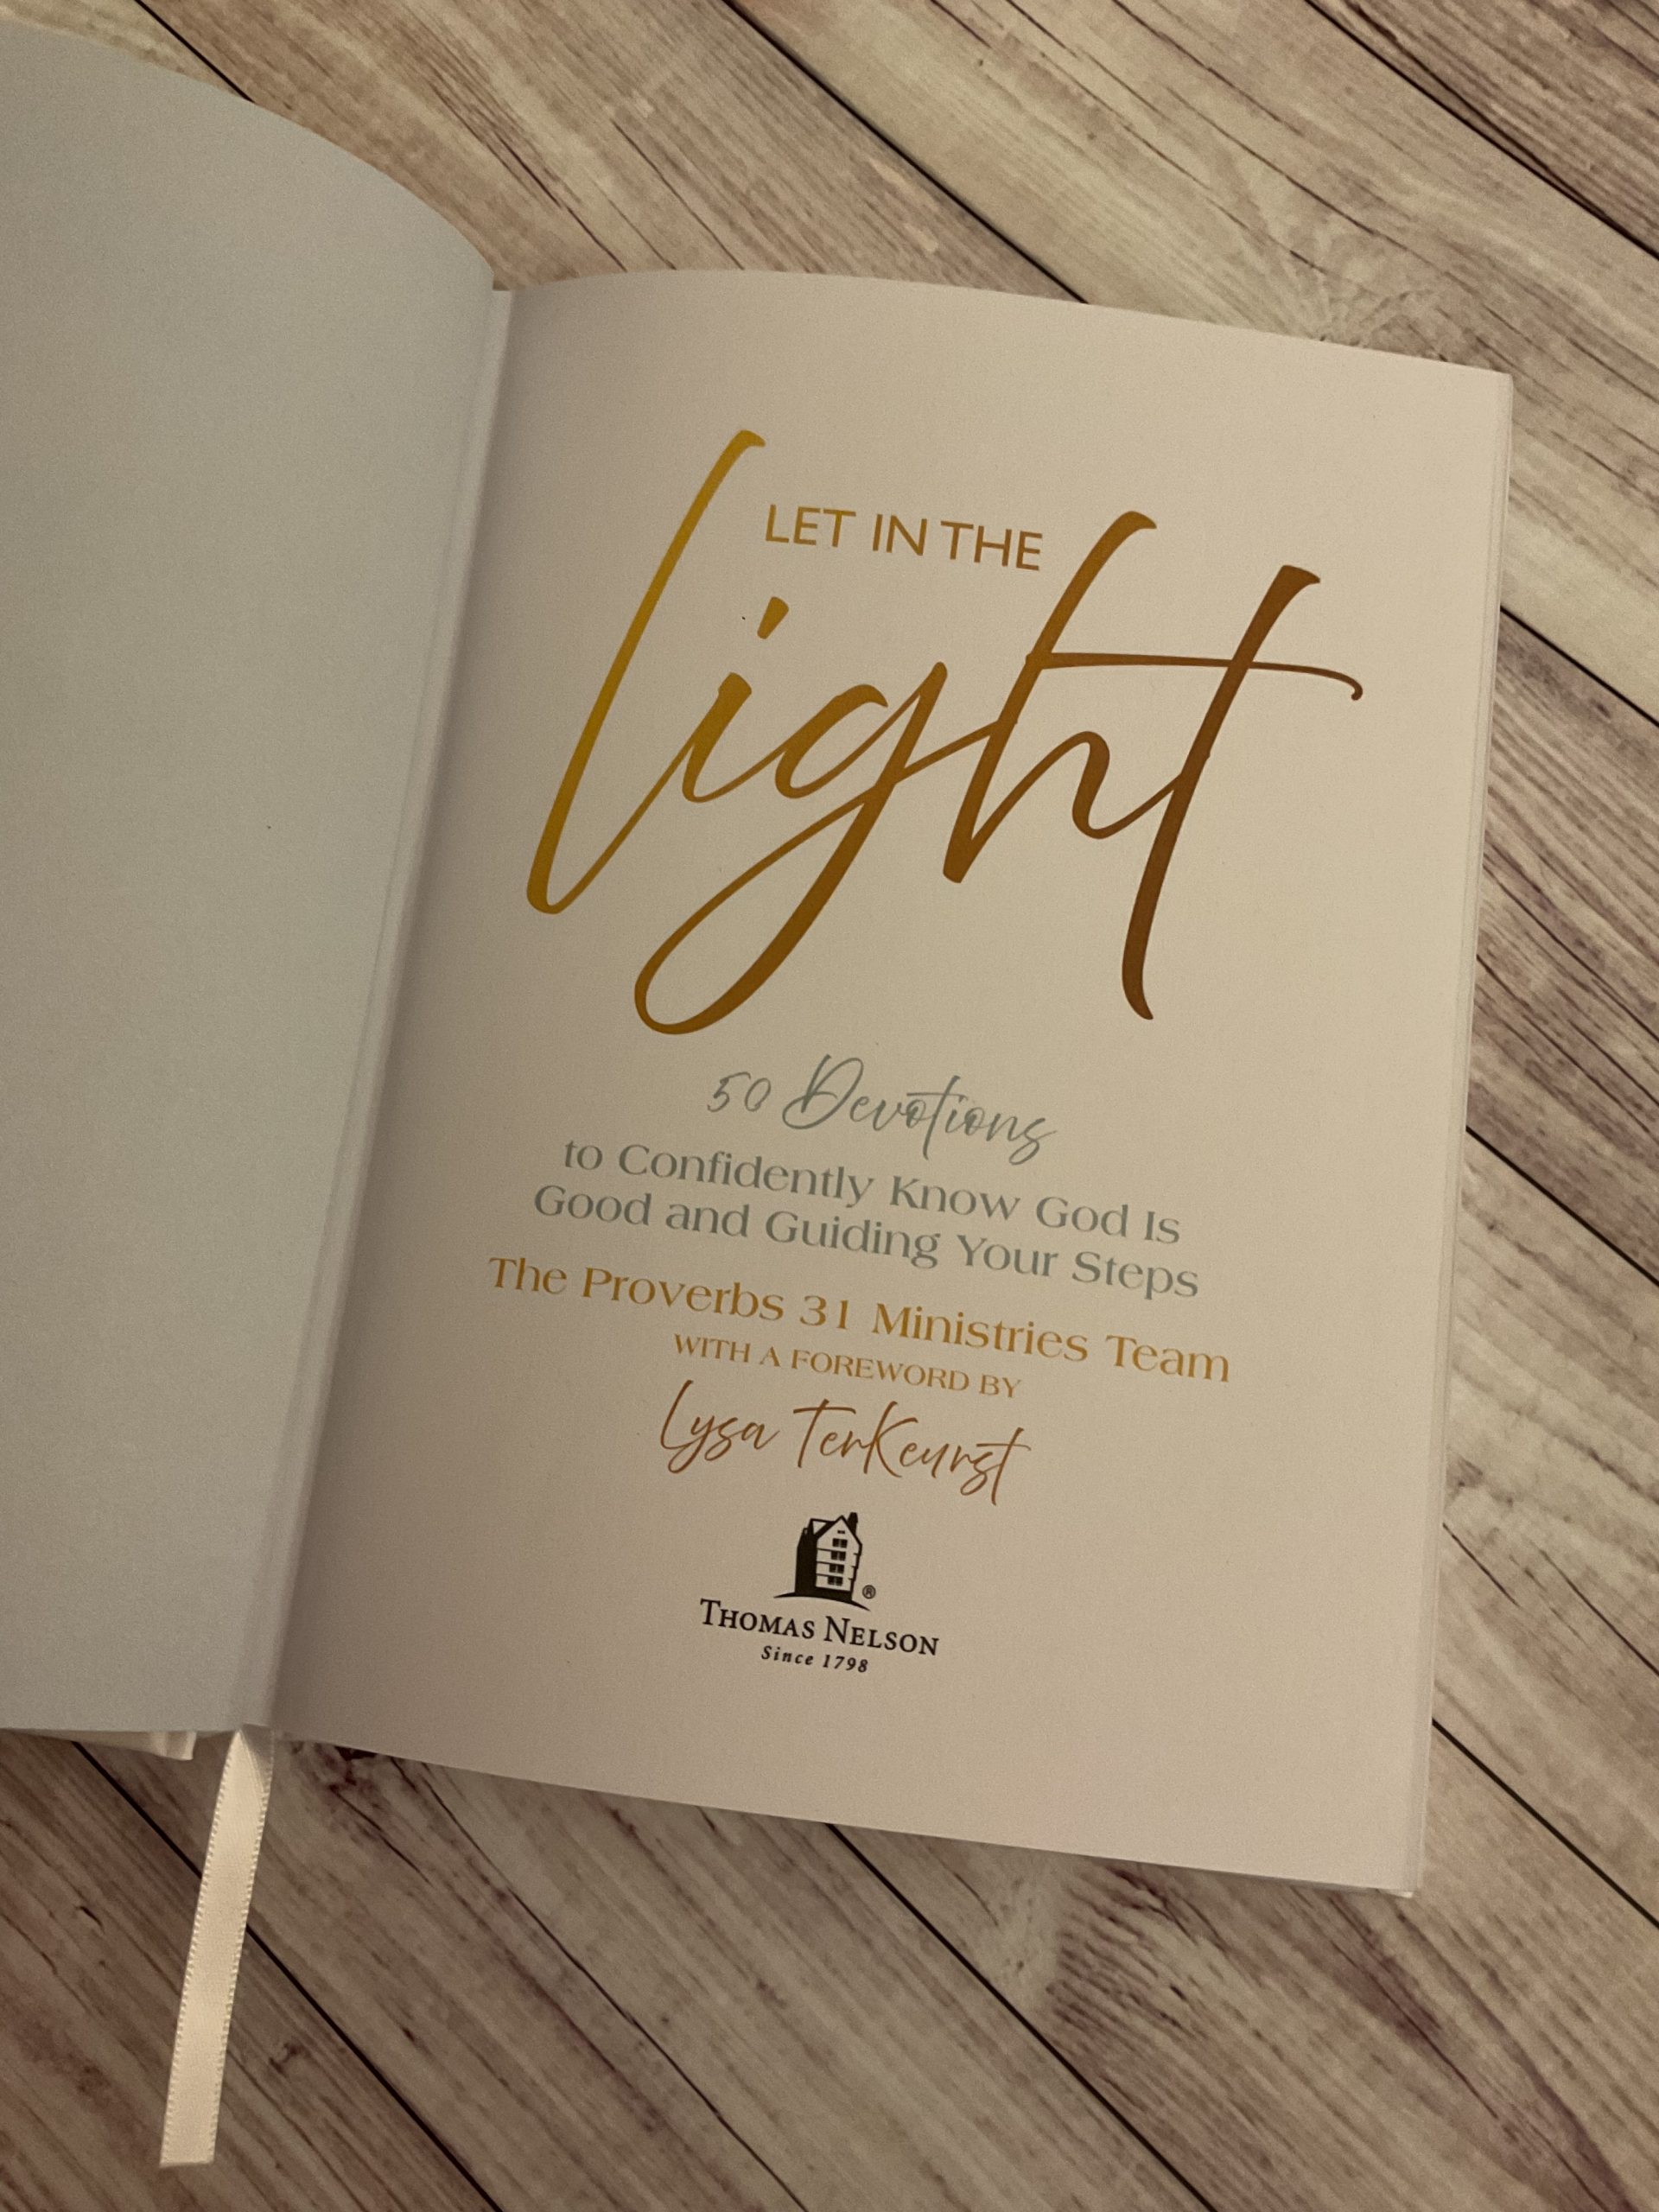 LET IN THE
light
50 Devotions
to Confidently Know God Is
Good and Guiding Your Steps
The Proverbs 31 Ministries Team
WITH A FOREWORD BY
Lysa TerKeurst
®
THOMAS NELSON
Since 1798